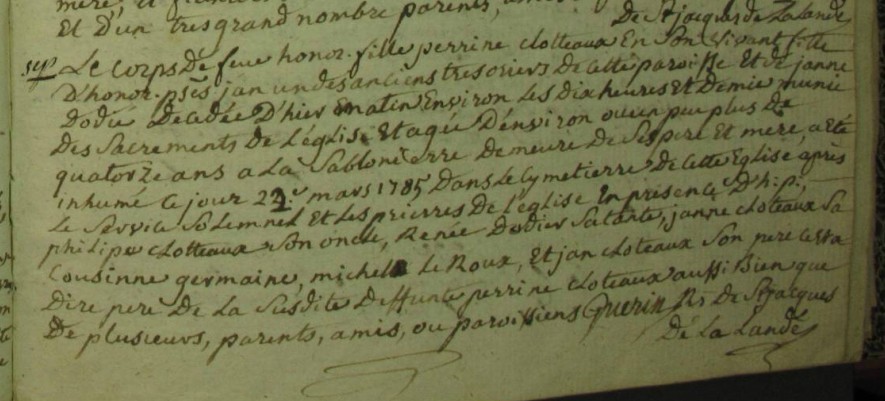 mere, et
Et D'un tres grand nombre parents,
De St jacques de La Lande
sep Le corps De feue honor. fille perrine clotteaux En Son Vivant fille
D'honor. psēs jan un des anciens tresoriers De Cette paroisse Et de janne
dodié Decedée D'hier matin Environ Les dix heures Et Demie munie
Des Sacrements De L'église Et agée D'énvirón ou un peu plus de
quatorze ans a La Sablonierre Demeure De Ses pere Et mere, a eté
inhumé ce jour 22e mars 1785 Dans Le Cymetierre De Cette Eglise après
Le Service Solemnel Et Les prierres De L'église En présence D'h.p.,
philipe clotteaux son oncle, Renée Dodier Sa tante, janne cloteaux Sa
Cousinne germaine, michel Le Roux, Et jan cloteaux Son pere
Dire pere De La Susdite Deffunte perrine cloteaux aussi Bien que
De plusieurs, parents, amis, ou paroissiens Guerin Rr De St jacques
De La Lande